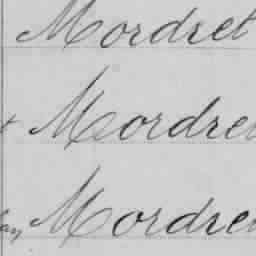 Mordret
Mordret
Mordret